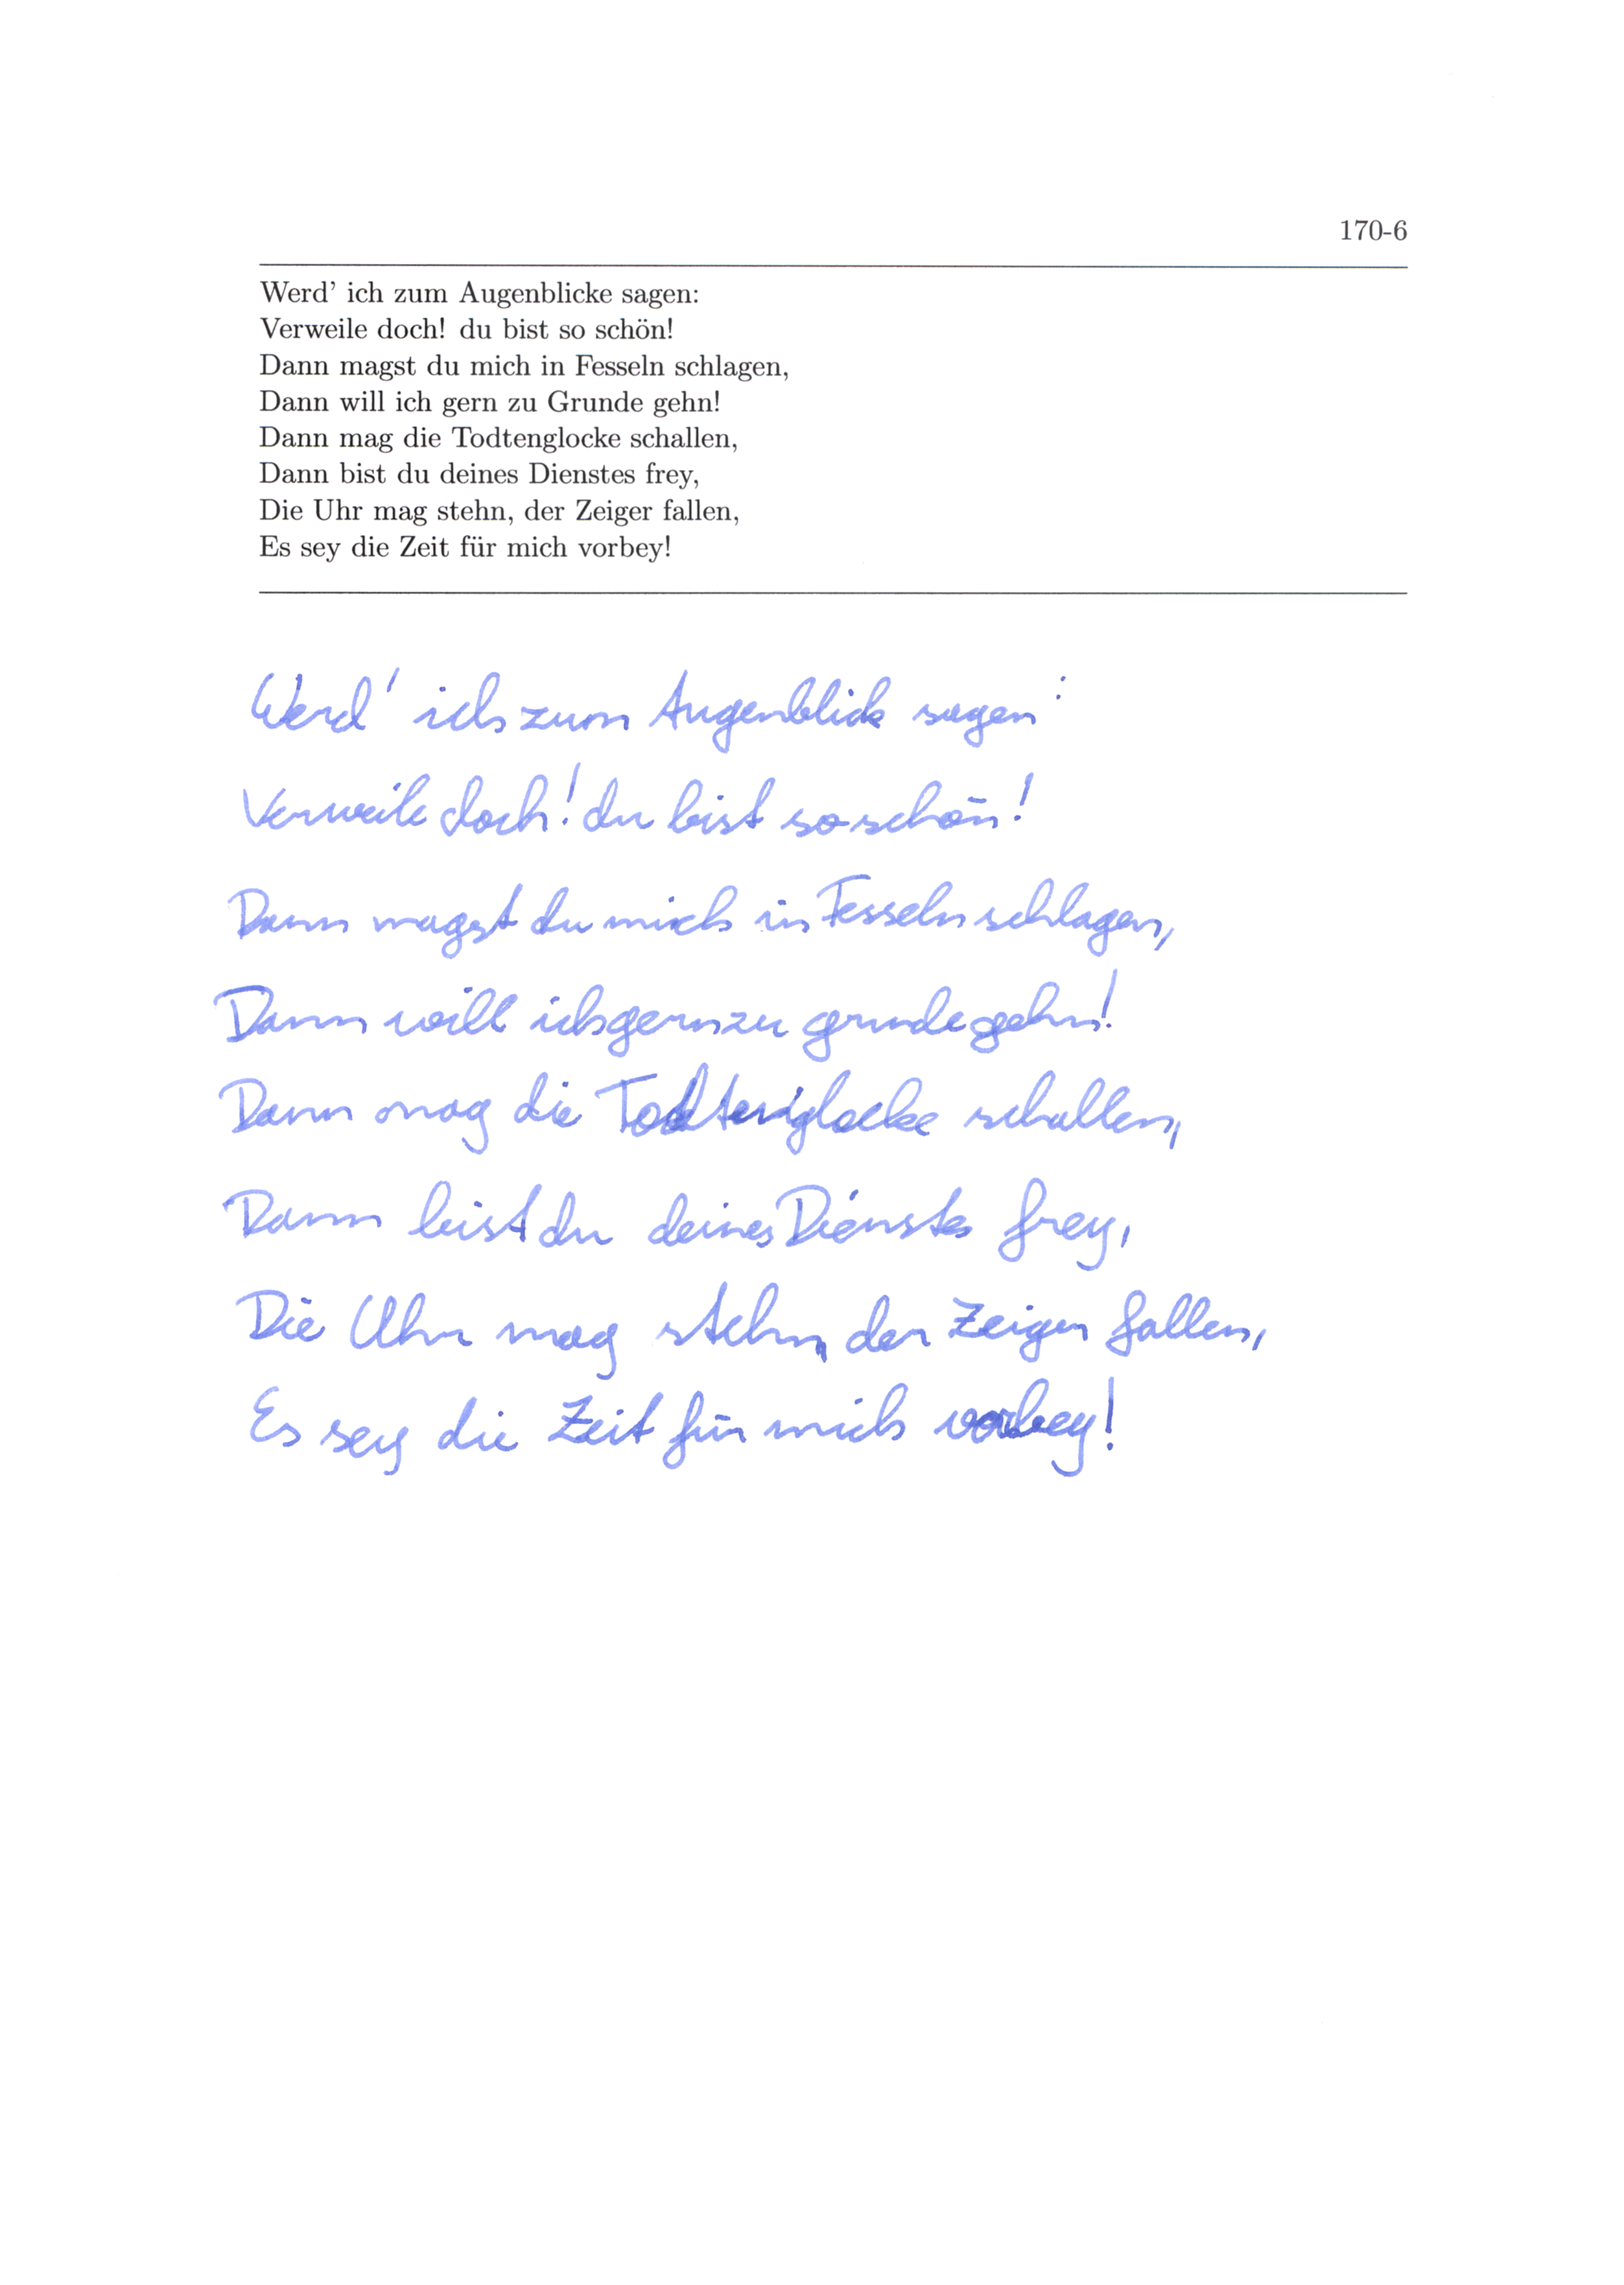 170-6
Werd' ich zum Augenblicke sagen:
Verweile doch! du bist so schön!
Dann magst du mich in Fesseln schlagen,
Dann will ich gern zu Grunde gehn!
Dann mag die Todtenglocke schallen,
Dann bist du deines Dienstes frey,
Die Uhr mag stehn, der Zeiger fallen,
Es sey die Zeit für mich vorbey!
Werd' ich zum Augenblick sagen:
Verweile doch! du bist so schön!
Dann magst du mich in Fesseln schlagen,
Dann will ich gern zu grunde gehn!
Dann mag die Todtenglocke schallen,
Dann bist du deines Dienstes frey,
Die Uhr mag stehn, der Zeiger fallen,
Es sey die Zeit für mich vorbey!